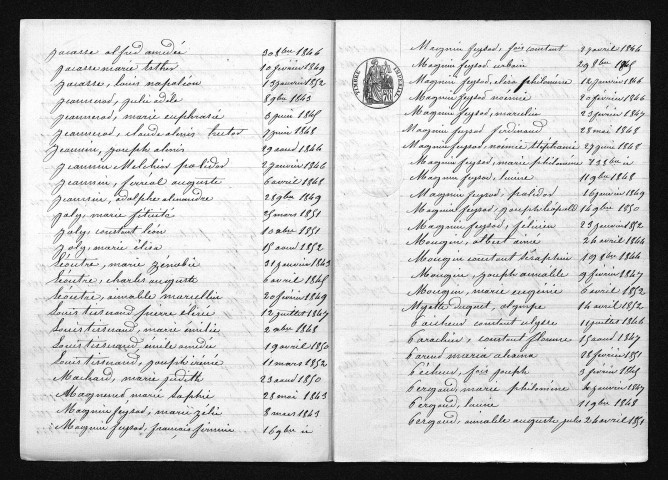 Jacasse alfred amédée 30 8bre 1846
Jacasse marie Esther 10 février 1849
Jacasse, louis napoléon 13 janvier 1852
Jeannerod, julie adèle 8 9bre 1843
Jeannerod, marie euphrasie 3 juin 1845
Jeannerod, claude alexis 7 juin 1848
Jeannin, joseph alexis 29 aout 1846
Jeannin Melchior polidor 2 janvier 1846
Jeannin, ferréol auguste 6 avril 1848
Jeannin, adolphe alexandre 28 9bre 1849
Joly, marie 25 mars 1851
Joly, constant léon 10 xbre 1851
Joly, marie élisa 15 aout 1852
marie zénobie 31 janvier 1843
charles auguste 6 avril 1845
aimable marcellin 20 février 1849
Louis tissnaud pierre élisée 12 juillet 1847
Louis tissnaud, marie émélie 2 xbre 1848
Louis tissnaud émile amédée 19 avril 1850
Louis tissnaud, joseph irénée 11 mars 1852
Machard, marie judith 23 aout 1850
Magnenod marie saphie 28 mai 1843
Magnin feysod, marie zélie 8 mars 1843
Magnin feysod, françois firmin 16 9bre id
TIMBRE IMPÉRIAL
Magnin feysod, fois constant 2 janvier 1846
Magnin feysod urbain 29 8bre 1845
Magnin feysod, clera philomène 12 janvier 1846
Magnin feysod noémie 20 février 1846
Magnin feysod, marcelin 23 février 1847
Magnin feysod ferdinand 28 mai 1848
Magnin feysod, noémie stéphanie 27 juin 1848
Magnin feysod, marie philomène 7 xbre id
Magnin feysod, lucine 11 9bre 1848
Magnin feysod, polidor 16 janvier 1849
Magnin feysod, joseph léopold 14 9bre 1850
Magnin feysod, félicien 23 janvier 1852
Mougin, albert aimé 26 avril 1844
Mougin constant séraphin 19 8bre 1844
Mougin, joseph aimable 9 février 1847
Mougin marie eugénie 6 avril 1852
Myotte duquet, olympe 14 avril 1852
constant ulysse 11 juillet 1846
constant florence 15 aout 1847
maria alxina 28 février 1851
Pécheur, fois joseph 3 février 1845
Pergaud marie philomène 4 janvier 1847
Pergaud, lucine 11 9bre 1848
Pergaud, aimable auguste jules 24 avril 1851